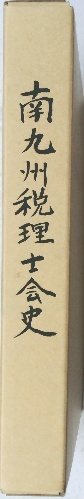 南九州税理士会史